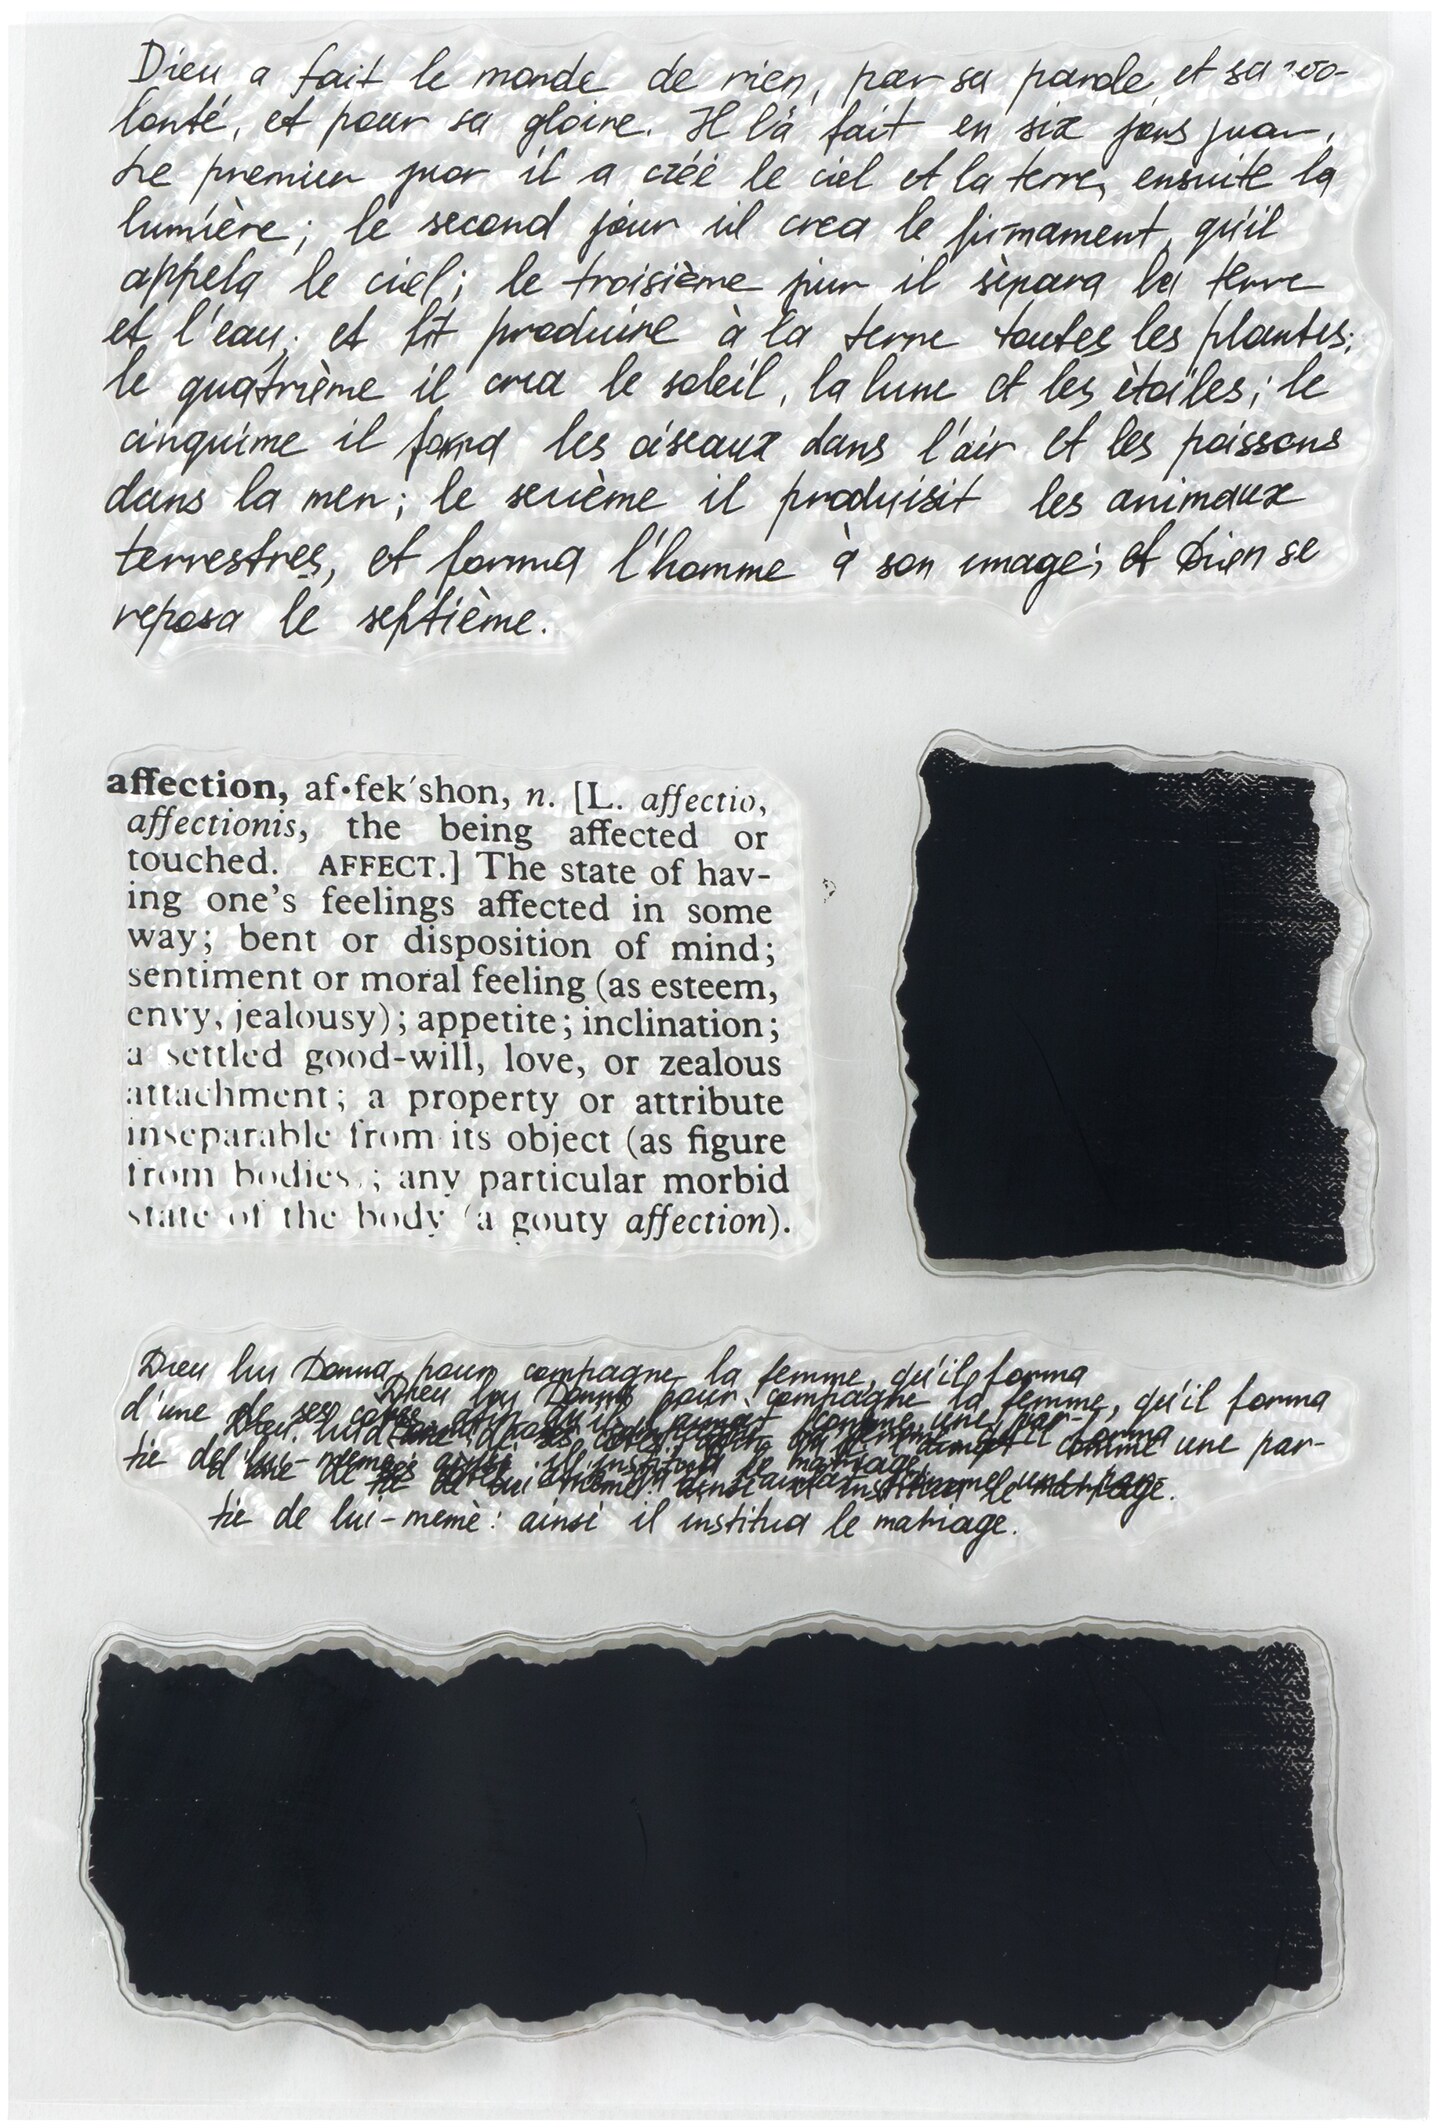 Dieu a fait le monde de rien, par sa parole, et sa vo-
lonté, et pour sa gloire. Il l'a fait en six jours
Le premier juor il a créé le ciel et la terre, ensuite la
lumière; le second jour il crea le firmament, qu'il
appela le ciel; le troisième jour il sèpara la terre
et l'eau; et fit produire à la terre toutes les plantes;
le quatrième il crea le soleil, la lune et les ètoiles; le
cinquime il les oiseaux dans l'air et les poissons
dans la mer; le il produisit les animaux
terrestres, et forma l'homme à son image; et Dieu se
reposa le septième.
affection, af•fek′shon, n. [L. affectio,
affectionis, the being affected or
touched. AFFECT.] The state of hav-
ing one's feelings affected in some
way; bent or disposition of mind;
sentiment or moral feeling (as esteem,
envy, jealousy); appetite; inclination;
a settled good-will, love, or zealous
attachment; a property or attribute
inseparable from its object (as figure
from bodies); any particular morbid
state of the body (a gouty affection).
Dieu lui Donna pour compagne la femme, qu'il forma
Dieu lui Donna pour compagne la femme, qu'il forma
d'une de ses
comme une par-
tie de lui-meme: ainsi il institua le mariage.
tie de lui-memè: ainsi il institua le mariage.